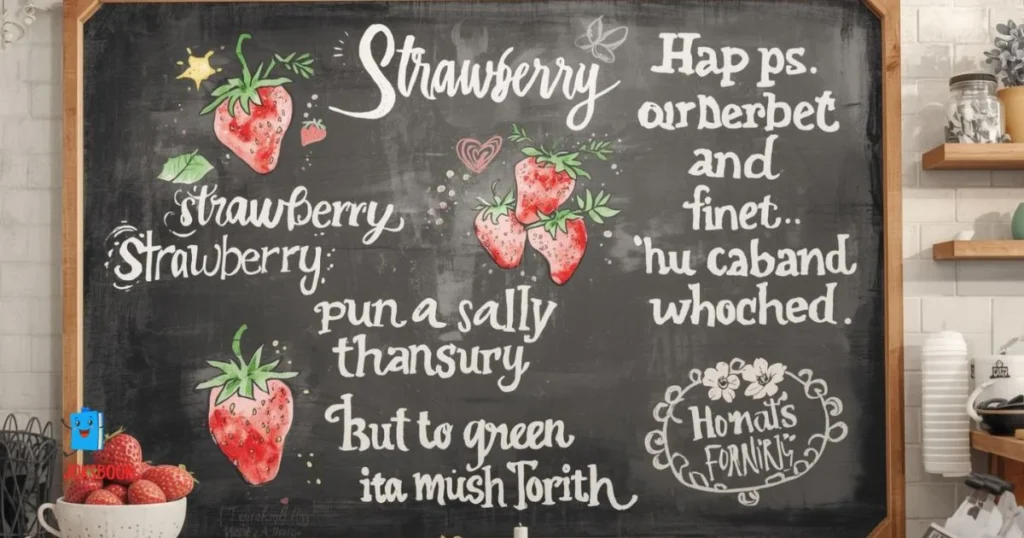 Strawberry
strawberry
Strawberry
pun a sally
thansury
but to green
ita mush Torith
Hap ps.
ourDerbet
and
finet..
'hu caband
whoched.
Homat's